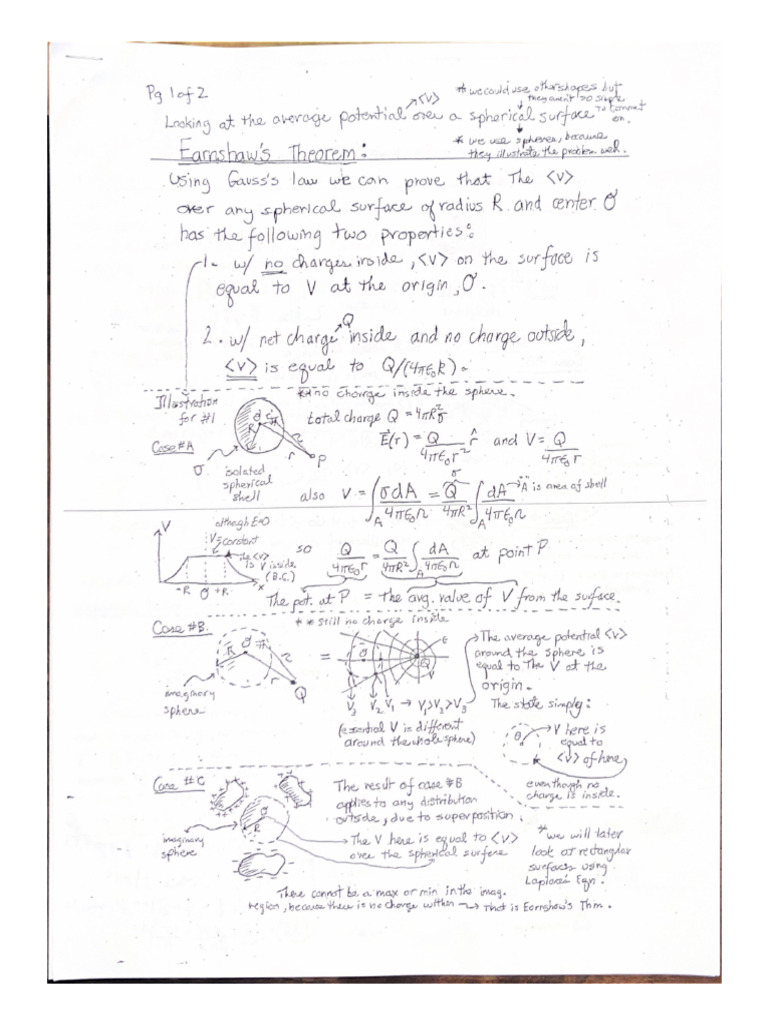 Pg 1 of 2
* we could use other shapes but
they aren't so simple
to comment
on.
<V>
Looking at the average potential over a spherical surface
* we use spheres, because
they illustrate the problem well.
Earnshaw's Theorem:
Using Gauss's law we can prove that The <V>
over any spherical surface of radius R and center O
has the following two properties:
1. w/ no charges inside, <V> on the surface is
equal to V at the origin, O.
2. w/ net charge Q inside and no charge outside,
<V> is equal to Q/(4πε₀R).
** no charge inside the sphere.
Illustration
for #1
Case #A
O
R
r
P
σ
isolated
spherical
shell
total charge Q = 4πR²σ
E(r) = Q/(4πε₀r²) r̂ and V = Q/(4πε₀r)
also V = ∫_A σdA/(4πε₀r) = Q/(4πR²) ∫_A dA/(4πε₀r) "A" is area of shell
σ
V
although E=0
V=constant
The <V>
is V inside
(B.C.)
-R O +R x
so Q/(4πε₀r) = Q/(4πR²) ∫_A dA/(4πε₀r) at point P
The pot. at P = the avg. value of V from the surface.
Case #B.
** still no charge inside
R O r
Q
imaginary
sphere
=
O
Q
V₃ V₂ V₁ → V₁>V₂>V₃
(essential V is different
around the whole sphere)
The average potential <V>
around the sphere is
equal to The V at the
origin.
The state simply:
O
V here is
equal to
<V> of here,
even though no
charge is inside.
Case #C
O
R
imaginary
sphere
The result of case #B
applies to any distribution
outside, due to superposition.
The V here is equal to <V>
over the spherical surface
* we will later
look at rectangular
surfaces using
Laplace's Eqn.
There cannot be a max or min in the imag.
region, because there is no charge within → That is Earnshaw's Thm.